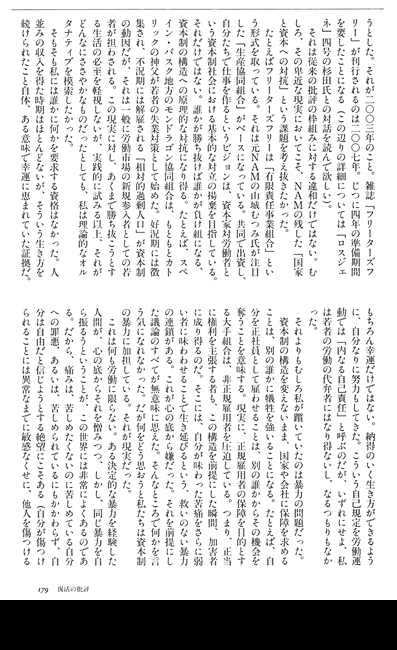 うとした。それが二〇〇三年のこと。雑誌「フリーターズフ
リー」が刊行されるのは二〇〇七年。じつに四年の準備期間
を要したことになる（この辺りの詳細については「ロスジェ
ネ」四号の杉田氏との対話を読んで欲しい）。
それは従来の批評の枠組みに対する違和だけではない。む
しろ、その卑近な現実においてこそ、NAMの残した「国家
と資本への対抗」という課題を考え抜きたかった。
たとえばフリーターズフリーは「有限責任事業組合」とい
う形式を取っている。それは元NAMの山城むつみ氏が注目
した「生産協同組合」がベースになっている。共同で出資し、
自分たちで仕事を作るというビジョンは、資本家対労働者と
いう資本制社会における基本的な対立の揚棄を目指している。
それだけではない。誰かが勝ち抜けば誰かが負け組になる、
資本制の構造への原理的な対抗になり得る。たとえば、スペ
イン・バスク地方のモンドラゴン協同組合は、もともとカト
リックの神父が若者の失業対策として始めた。好況期には徴
集され、不況期には解雇される「相対的過剰人口」が資本制
の動因だが、それは一般に労働市場の新規参入者としての若
者が担わされる。この現実に対し、あくまで勝ち抜こうとす
る生活の必要を軽視しないが、実践的に試みる以上、それが
どんなにささやかなものだったとしても、私は理論的なオル
タナティブを模索したかった。
そもそも私には誰かに何かを要求する資格はなかった。人
並みの収入を得た時期はほとんどないが、そういう生き方を
続けられたこと自体、ある意味で幸運に恵まれていた証拠だ。
もちろん幸運だけではない。納得のいく生き方ができるよう
に、自分なりに努力もしてきた。こういう自己規定を労働運
動では「内なる自己責任」と呼ぶのだが、いずれにせよ、私
は若者の労働の代弁者にはなり得ないし、なるつもりもなか
った。
それよりもむしろ私が躓いていたのは暴力の問題だった。
資本制の構造を変えないまま、国家や会社に保障を求める
ことは、別の誰かに犠牲を強いることになる。たとえば、自
分を正社員として雇わせることは、別の誰かからその機会を
奪うことを意味する。現実に、正規雇用者の保障を目的とす
る大手組合は、非正規雇用者を圧迫している。つまり、正当
に権利を主張する者も、この構造を前提にした瞬間、加害者
に成り得るのだ。そこには、自分が味わった苦痛をさらに弱
い者に味わわせることで生き延びるという、救いのない暴力
の連鎖がある。これが心の底から嫌だった。それを前提にし
た議論のすべてが無意味に思えた。そんなところで何かを言
う気になれなかった。だが何をどう思おうと私たちは資本制
の暴力に加担している。それが現実だった。
これは何も労働に限らない。ある決定的な暴力を経験した
人間が、心の底からそれを憎みつつ、しかし、同じ暴力を自
ら振るうということが、この世界には非常によくあるのであ
る。だから、痛みは、苦しめたくないのに苦しめている自分
への罪悪、あるいは、苦しめられているにもかかわらず、自
分は自由だと信じようとする絶望にこそある（自分が傷つけ
られることには異常なまでに敏感なくせに、他人を傷つける
179 復活の批評